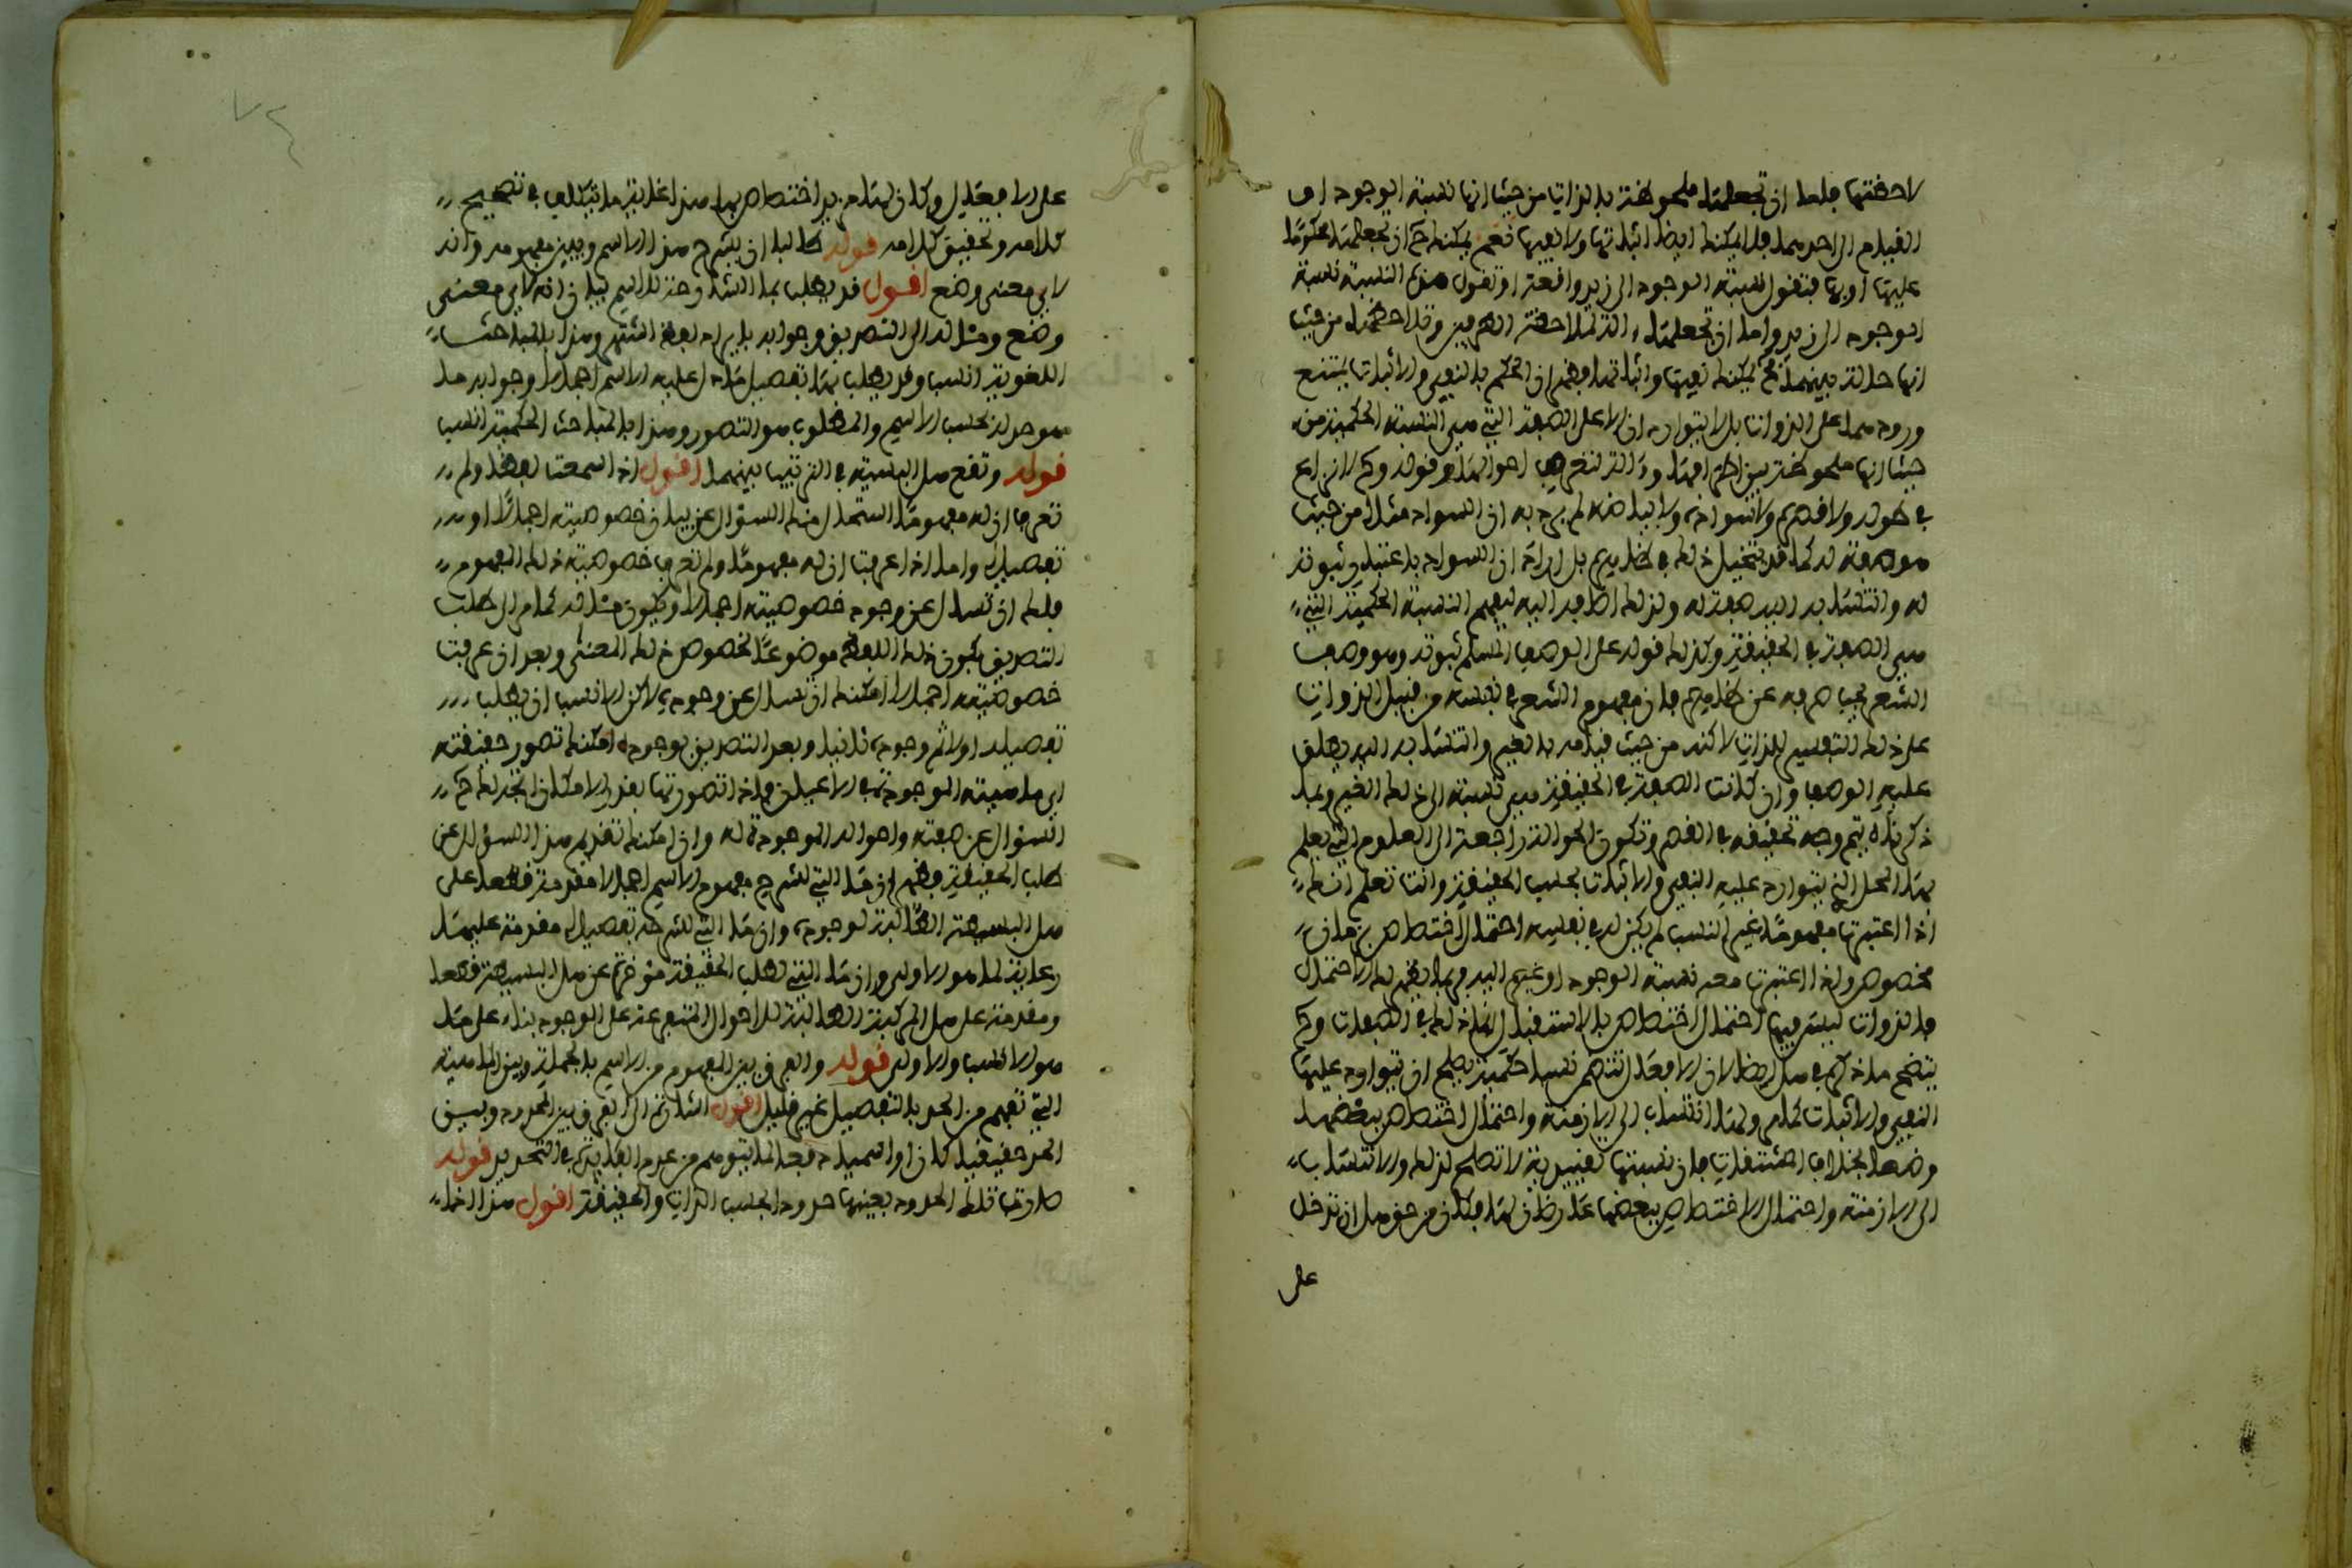 لاحظتها فلك ان تجعلها ملحوظة بالذات من حيث انها نسبة الوجود او
القيام الى احدهما فلا يمكنك ايضا اثباتها ولا نفيها نعم يمكنك ح ان تجعلها محكوما
عليها او بها فتقول نسبة الوجود الى زيد واقعة او تقول هذه النسبة نسبة
الوجود الى زيد واما ان تجعلها الة لملاحظة الطرفين وتلاحظها من حيث
انها حالة بينهما فح يمكنك نفيها واثباتها فظهر ان الحكم بالنفي والاثبات يمتنع
ورودهما على الذوات بل لا يتواردان الا على الصفة التي هي النسبة الحكمية من
حيث انها ملحوظة بين اطرافها والة لتعرف احوالها وقوله وح لا نزاع
في طوله ولا قصره ولا سواده ولا بياضه لم يرد به ان السواد مثلا من حيث
هو صفة له كما قد يتخيل ذلك في ظاهره بل اراد ان السواد باعتبار ثبوته
له وانتسابه اليه صفة له ولذلك اضافه اليه ليفهم النسبة الحكمية التي
هي الصفة في الحقيقة وكذلك قوله على الوصف المسلم ثبوته وهو وصف
الشعر يجب صرفه عن ظاهره فان مفهوم الشعر في نفسه من قبيل الذوات
على ذلك التفسير للذات لاكنه من حيث قيامه بالغير وانتسابه اليه يطلق
عليه الوصف وان كانت الصفة في الحقيقة هي نسبته الى ذلك الغير وبما
ذكرناه يتم وجه تحقيقه في القصر وتكون الحوالة راجعة الى العلوم التي يعلم
بها المحل الذي يتوارد عليه النفي والاثبات بحسب الحقيقة وانت تعلم انك
اذا اعتبرت مفهوما غير النسب لم يكن له في نفسه احتمال اختصاص بزمان
مخصوص واذا اعتبرت معه نسبة الوجود او غيره اليه فربما يظهر له الاحتمال
فالذوات ليس فيها احتمال اختصاص بالاستقبال انما ذلك في الصفات وح
يتضح ما ذكره في هل ايضا لان الافعال تتضمن نسبا حكمية يصلح ان يتوارد عليها
النفي والاثبات كما مر ولها انتساب الى الازمنة واحتمال اختصاص ببعضها
وضعا بخلاف المشتقات فان نسبتها تقييدية لا تصلح لذلك والانتساب
الى الازمنة واحتمال الاختصاص ببعضها عارضان لها فكان من حق هل ان تدخل
على
على الافعال وكان لها مزيد اختصاص بها هذا غاية ما يتكلف في تصحيح
كلامه وتحقيق كلامه قوله طالبا ان يشرح هذا الاسم ويبين مفهومه وانه
لاي معنى وضع اقول قد يطلب بما الشارحة للاسم بيان انه لاي معنى
وضع ومثاله الى التصديق وجوابه بايراد لفظ اشهر وهذا بالمباحث
اللغوية انسب وقد يطلب بها تفصيل ما دل عليه الاسم اجمالا وجوابه ما
هو حد له بحسب الاسم والمطلوب هو التصور وهذا بالمباحث الحكمية انسب
قوله وتقع هل البسيطة في الترتيب بينهما اقول اذا سمعت لفظا ولم
تعرف ان له مفهوما استحال منك السؤال عن بيان خصوصيته اجمالا او
تفصيلا واما اذا عرفت ان له مفهوما ولم تعرف خصوصية ذلك المفهوم
فلك ان تسال عن وجود خصوصيته اجمالا ويكون مثاله كما مر الى طلب
التصديق بكون ذلك اللفظ موضوعا لخصوص ذلك المعنى وبعد ان عرفت
خصوصيته اجمالا امكنك ان تسال عن وجوده لاكن الانسب ان يطلب
تفصيله اولا ثم وجوده ثانيا وبعد التصديق بوجوده امكنك تصور حقيقته
اي ماهيته الموجودة في الاعيان فاذا تصورتها بقدر الامكان اتجه لك ح
السؤال عن صفته واحواله الموجودة له وان امكنك تقديم هذا السؤال عن
طلب الحقيقة فظهر ان ما التي لشرح مفهوم الاسم اجمالا مقدمة قطعا على
هل البسيطة الطالبة لوجوده وان ما التي لشرحه تفصيلا مقدمة عليها
رعاية لما هو الاولى وان ما التي لطلب الحقيقة مؤخرة عن هل البسيطة قطعا
ومقدمة على هل المركبة الطالبة للاحوال المتفرعة على الوجود بناء على ما
هو الانسب والاولى قوله والفرق بين المفهوم من الاسم بالجملة وبين الماهية
التي تفهم من الحد بالتفصيل غير قليل اقول اشارة الى الفرق بين المحدود وبين
الحد حقيقيا كان او اسميا دفعا لما يتوهم من عدم الفائدة في التحديد قوله
صارت تلك الحدود بعينها حدودا بحسب الذات والحقيقة اقول هذا انما